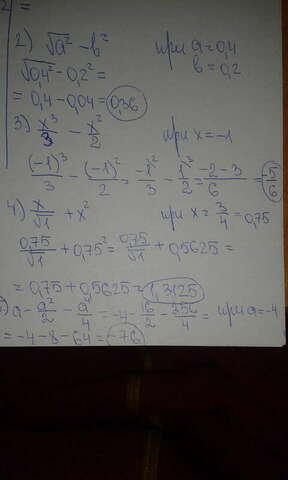 2 =
2) √a² - b² при a = 0,4
b = 0,2
√0,4² - 0,2² =
= 0,4 - 0,04 = 0,36
3) x³/3 - x²/2 при x = -1
(-1)³/3 - (-1)²/2 = -1²/3 - 1³/2 = -2-3/6 = -5/6
4) x/√1 + x² при x = 3/4 = 0,75
0,75/√1 + 0,75² = 0,75/√1 + 0,5625 =
= 0,75 + 0,5625 = 1,3125
a - a²/2 - a⁴/4 = -4 - 16/2 - 256/4 = при a = -4
= -4 - 8 - 64 = -76